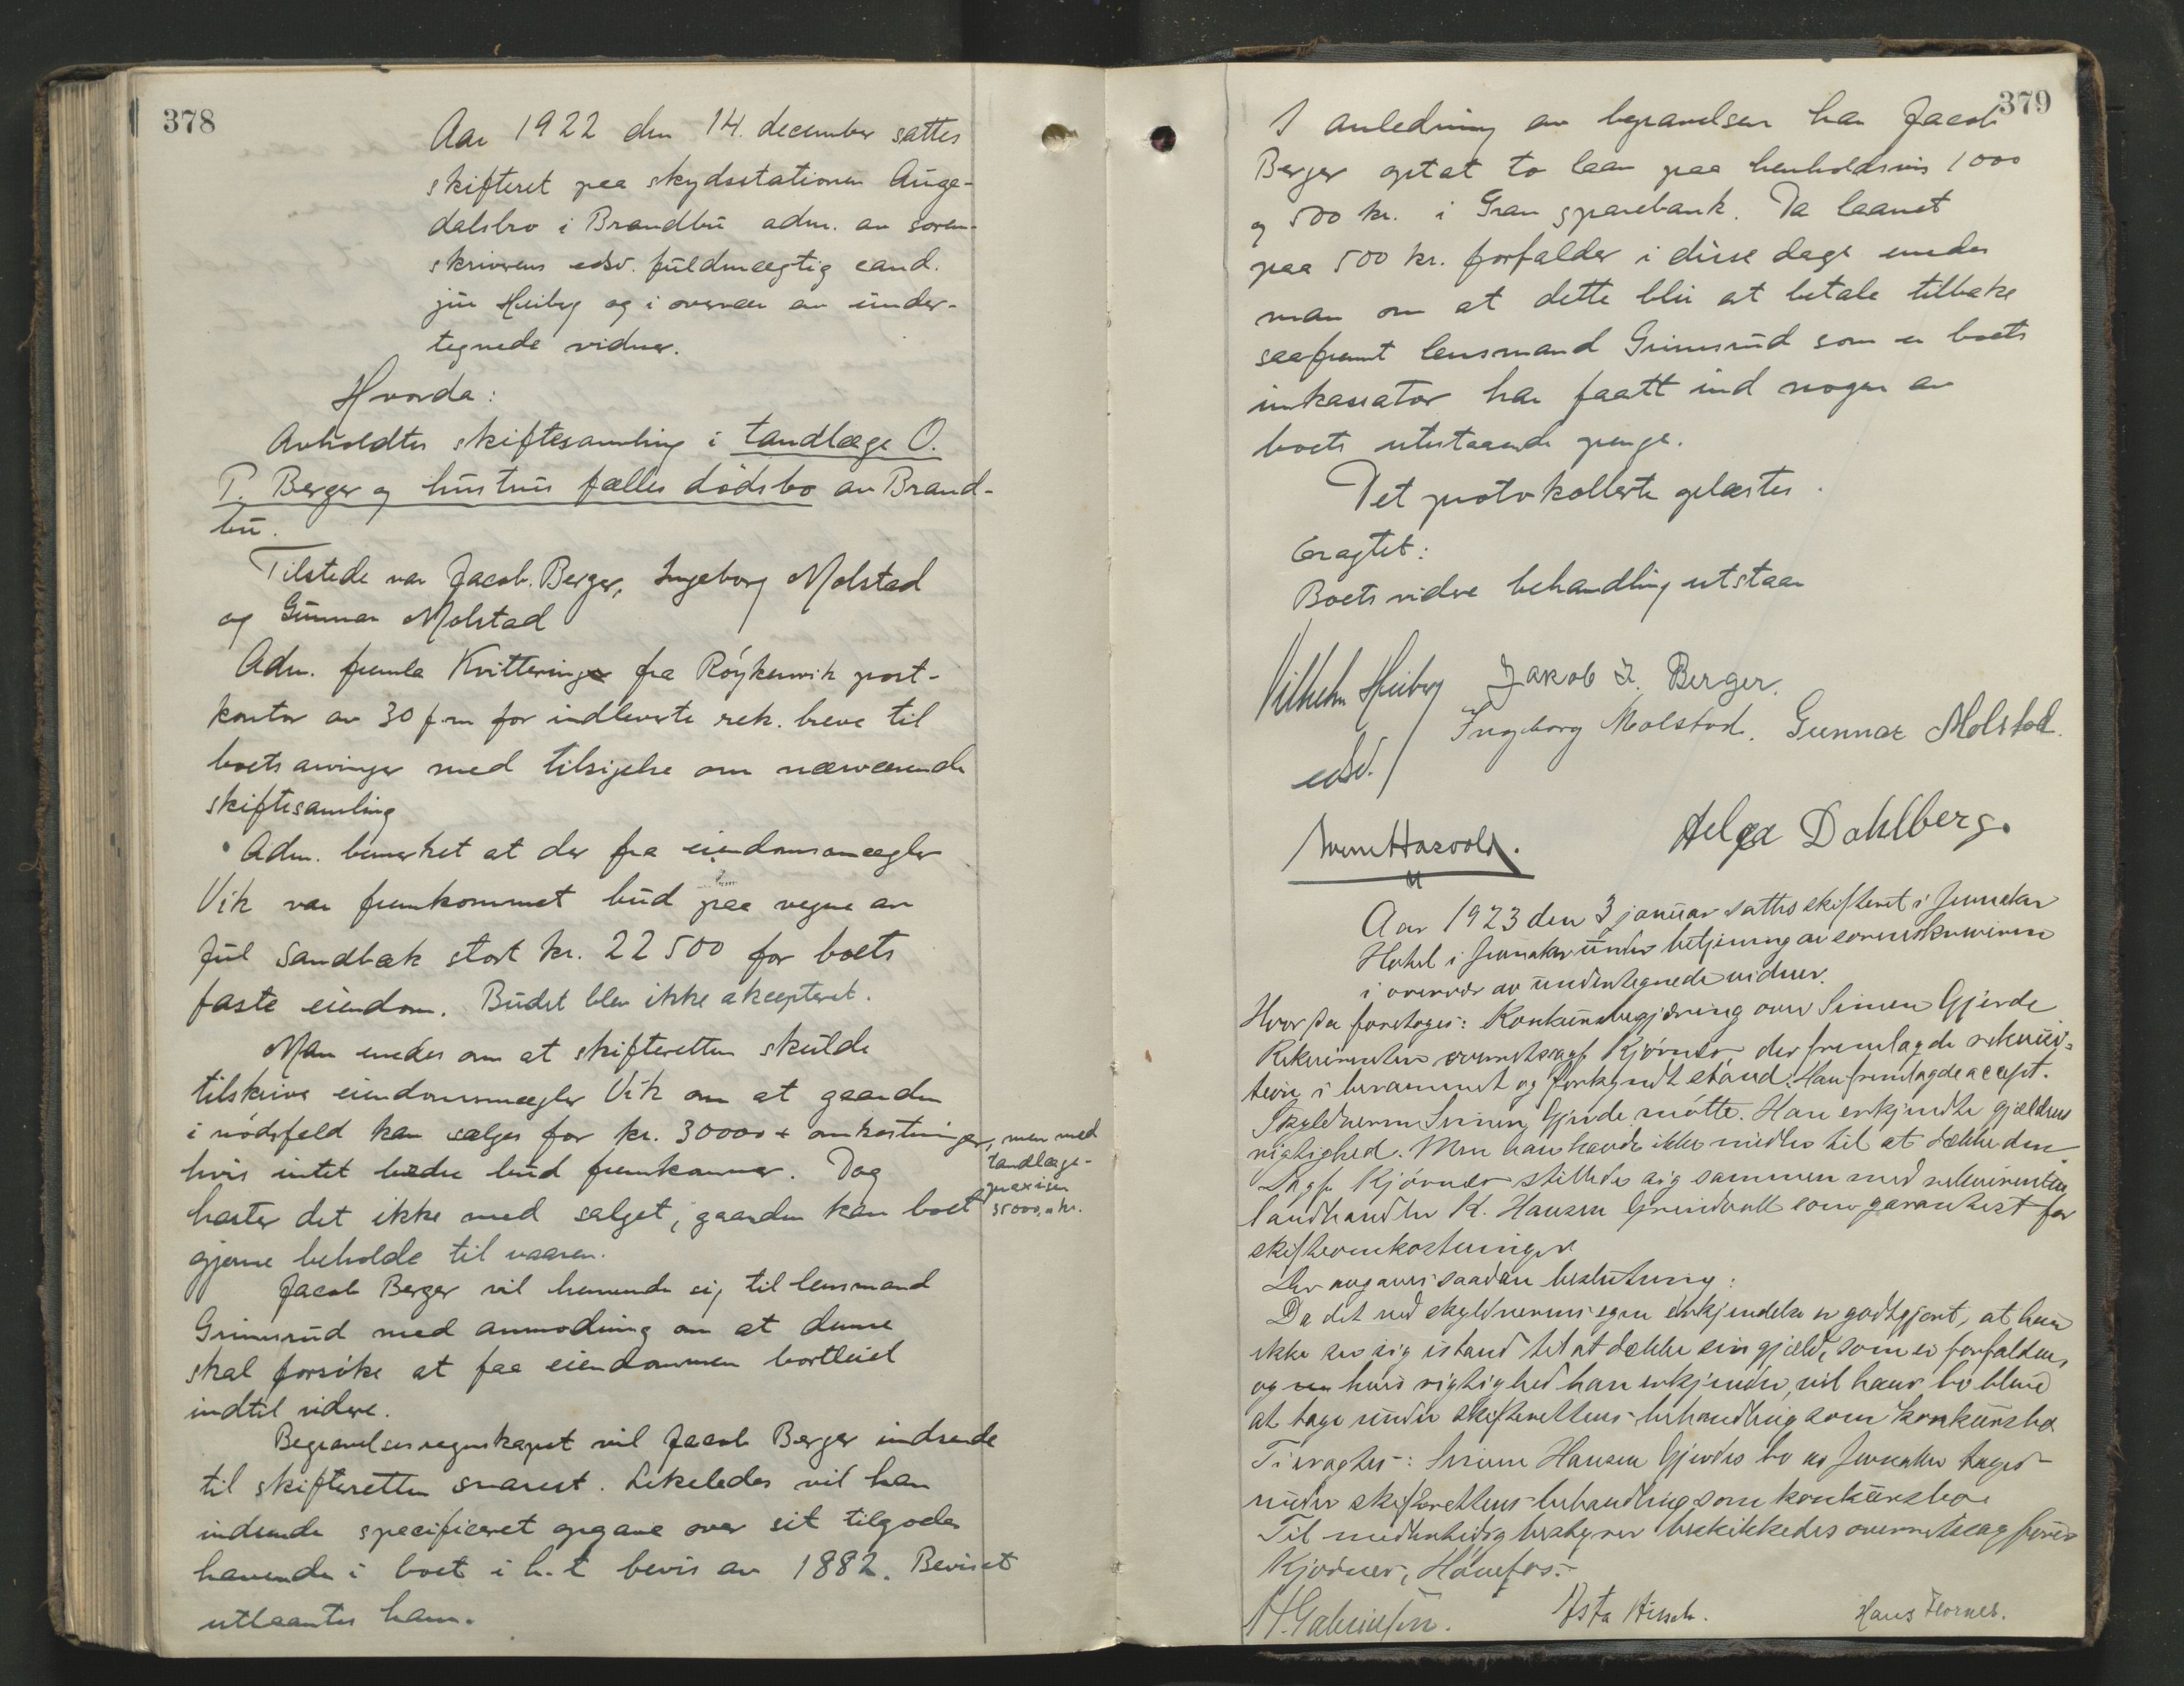 378
Aar 1922 den 14. december sattes
skifteret paa skydsstationen Auge-
dalsbro i Brandbu adm. av soren-
skriverens edsv. fuldmægtig cand.
jur Heiberg og i overvær av under-
tegnede vidner.
Hvorda:
Avholdtes skiftesamling i tandlæge O.
P. Berger og hustrus fælles dødsbo av Brand-
bu.
Tilstede var Jacob Berger, Ingeborg Molstad
og Gunnar Molstad
Adm. fremla Kvittering fra Røykenvik post-
kontor av 30 f.m for indleverte rek. breve til
boets arvinger med tilsigelse om nærværende
skiftesamling
Adm. bemerket at der fra eiendomsmægler
Vik var fremkommet bud paa vegne av
Jul Sandbæk stort kr. 22 500 for boets
faste eiendom. Budet blev ikke akcepteret.
Man enedes om at skifteretten skulde
tilskrive eiendomsmægler Vik om at gaarden
i nødsfald kan sælges for kr. 30000 + omkostninger, men med
tandlæge-
praxisen
35000,- kr.
hvis intet bedre bud fremkommer. Dog
haster det ikke med salget, gaarden kan boet
gjerne beholde til vaaren.
Jacob Berger vil henvende sig til lensmand
Grimsrud med anmodning om at denne
skal forsøke at faa eiendommen bortleiet
indtil videre.
Begravelsesregnskapet vil Jacob Berger indsende
til skifteretten snarest. Likeledes vil han
indsende specificeret opgave over sit tilgode-
havende i boet i h. t bevis av 1882. Beviset
utlaantes ham.
379
I anledning av begravelsen har Jacob
Berger optat to laan paa henholdsvis 1000
og 500 kr. i Gran sparebank. Da laanet
paa 500 kr. forfalder i disse dage enedes
man om at dette blir at betale tilbake
saafremt lensmand Grimsrud som er boets
inkassator har faatt ind nogen av
boets utestaaende penge.
Det protokollerte oplæstes.
Eragtet:
Boets videre behandling utstaar
Vilhelm Heiberg Jakob I. Berger.
Ingeborg Molstad. Gunnar Molstad.
edsv.
Helga Dahlberg.
Aar 1923 den 3 januar sattes skifteret i Jevnaker
Hotel i Jevnaker under betjening av sorenskriveren
i overvær av undertegnede vidner.
Hvorda foretoges: Konkursbegjæring over Simen Gjerde
Rekvirenten overretssagf. Kjørner, der fremlagde rekvisi-
tion i berammet og forkyndt stand. Han fremlagde accept.
Skyldneren Simen Gjerde møtte. Han erkjendte gjældens
rigtighed. Men han havde ikke midler til at dække den.
Sagf. Kjørner stillede sig sammen med rekvirenten
landhandler K. Hansen Grindvoll som garantist for
skifteomkostninger.
Der avgaves saadan beslutning:
Da det ved skyldnerens egen erkjendelse er godtgjort, at han
ikke ser sig istand til at dække sin gjæld, som er forfalden,
og hvis rigtighed han erkjender, vil hans bo blive
at tage under skifterettens behandling som konkursbo
Ti eragtes: Simen Hansen Gjerdes bo av Jevnaker tages
under skifterettens behandling som konkursbo.
Til midlertidig bestyrer beskikkedes overretssagfører
Kjørner, Hønefos.
Asta Hirsch. Hans Flornes.